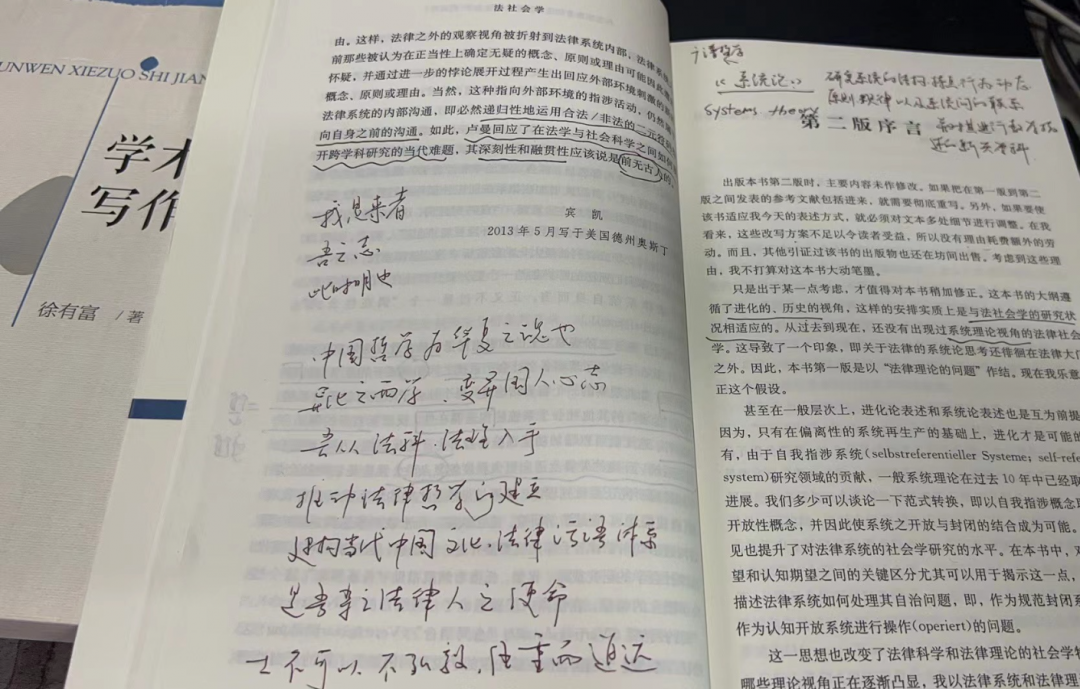 UNWEN XIEZUO SHI JIAN
学术
写作
徐有富 / 著
法社会学
由。这样，法律之外的观察视角被折射到法律系统内部，法律系
前那些被认为在正当性上确定无疑的概念、原则或理由可能因此
怀疑，并通过进一步的悖论展开过程产生出回应外部环境刺激的
概念、原则或理由。当然，这种指向外部环境的指涉活动，仍然
法律系统的内部沟通，即必然递归性地运用合法/非法的二元
向自身之前的沟通。如此，卢曼回应了在法学与社会科学之间如何
开跨学科研究的当代难题，其深刻性和融贯性应该说是前无古人的。
宾 凯
2013年5月写于美国德州奥斯丁
我是来者
吾之志
此时明也
中国哲学为华夏之魂也
异化之西学，变异国人心志
吾从法科、法理入手
推动法律哲学的建立
建构当代中国文化、法律话语体系
是吾辈之法律人之使命
士不可以不弘毅，任重而道远
《系统论》 研究系统的结构 特点 行为 动态
原则 规律 以及系统间的联系
systems theory
第二版序言
的新兴学科
出版本书第二版时，主要内容未作修改。如果把在第一版到第二
版之间发表的参考文献包括进来，就需要彻底重写。另外，如果要使
该书适应我今天的表述方式，就必须对文本多处细节进行调整。在我
看来，这些改写方案不足以令读者受益，所以没有理由耗费额外的劳
动。而且，其他引证过该书的出版物也还在坊间出售。考虑到这些理
由，我不打算对这本书大动笔墨。
只是出于某一点考虑，才值得对本书稍加修正。这本书的大纲遵
循了进化的、历史的视角，这样的安排实质上是与法社会学的研究状
况相适应的。从过去到现在，还没有出现过系统理论视角的法律社会
学。这导致了一个印象，即关于法律的系统论思考还徘徊在法律大门
之外。因此，本书第一版是以“法律理论的问题”作结。现在我乐意
正这个假设。
甚至在一般层次上，进化论表述和系统论表述也是互为前提
因为，只有在偏离性的系统再生产的基础上，进化才是可能的
有，由于自我指涉系统(selbstreferentieller Systeme；self-refe
system)研究领域的贡献，一般系统理论在过去10年中已经取
进展。我们多少可以谈论一下范式转换，即以自我指涉概念
开放性概念，并因此使系统之开放与封闭的结合成为可能。
见也提升了对法律系统的社会学研究的水平。在本书中，对
望和认知期望之间的关键区分尤其可以用于揭示这一点，
描述法律系统如何处理其自治问题，即，作为规范封闭系
作为认知开放系统进行操作(operiert)的问题。
这一思想也改变了法律科学和法律理论的社会学
哪些理论视角正在逐渐凸显，我以法律系统和法律理